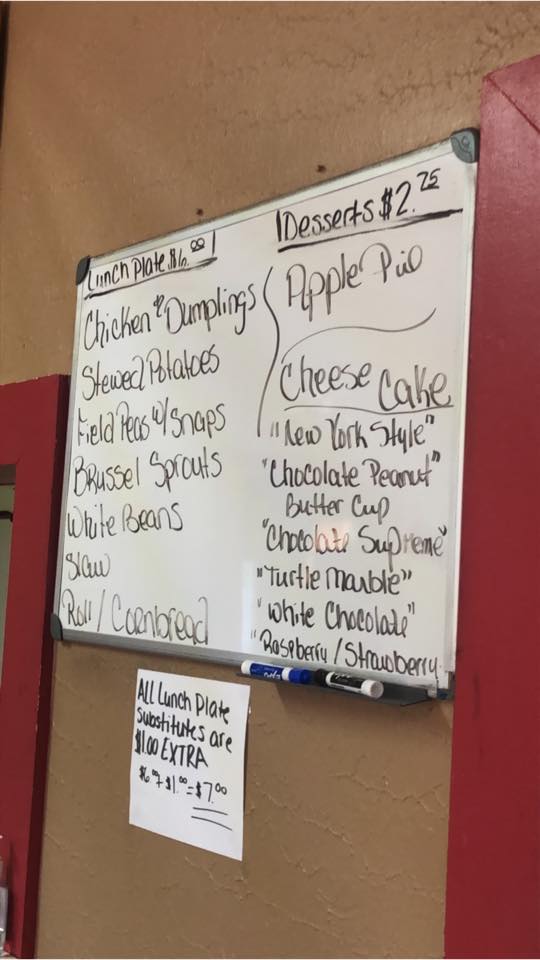 Lunch Plate $6.00
Chicken & Dumplings
Stewed Potatoes
Field Peas w/ Snaps
Brussel Sprouts
White Beans
Slaw
Roll / Cornbread
Desserts $2.75
Apple Pie
Cheese Cake
"New York Style"
"Chocolate Peanut"
Butter Cup
"Chocolate Supreme"
"Turtle Marble"
"White Chocolate"
"Raspberry / Strawberry
ALL Lunch Plate
Substitutes are
$1.00 EXTRA
$6.00 + $1.00 = $7.00